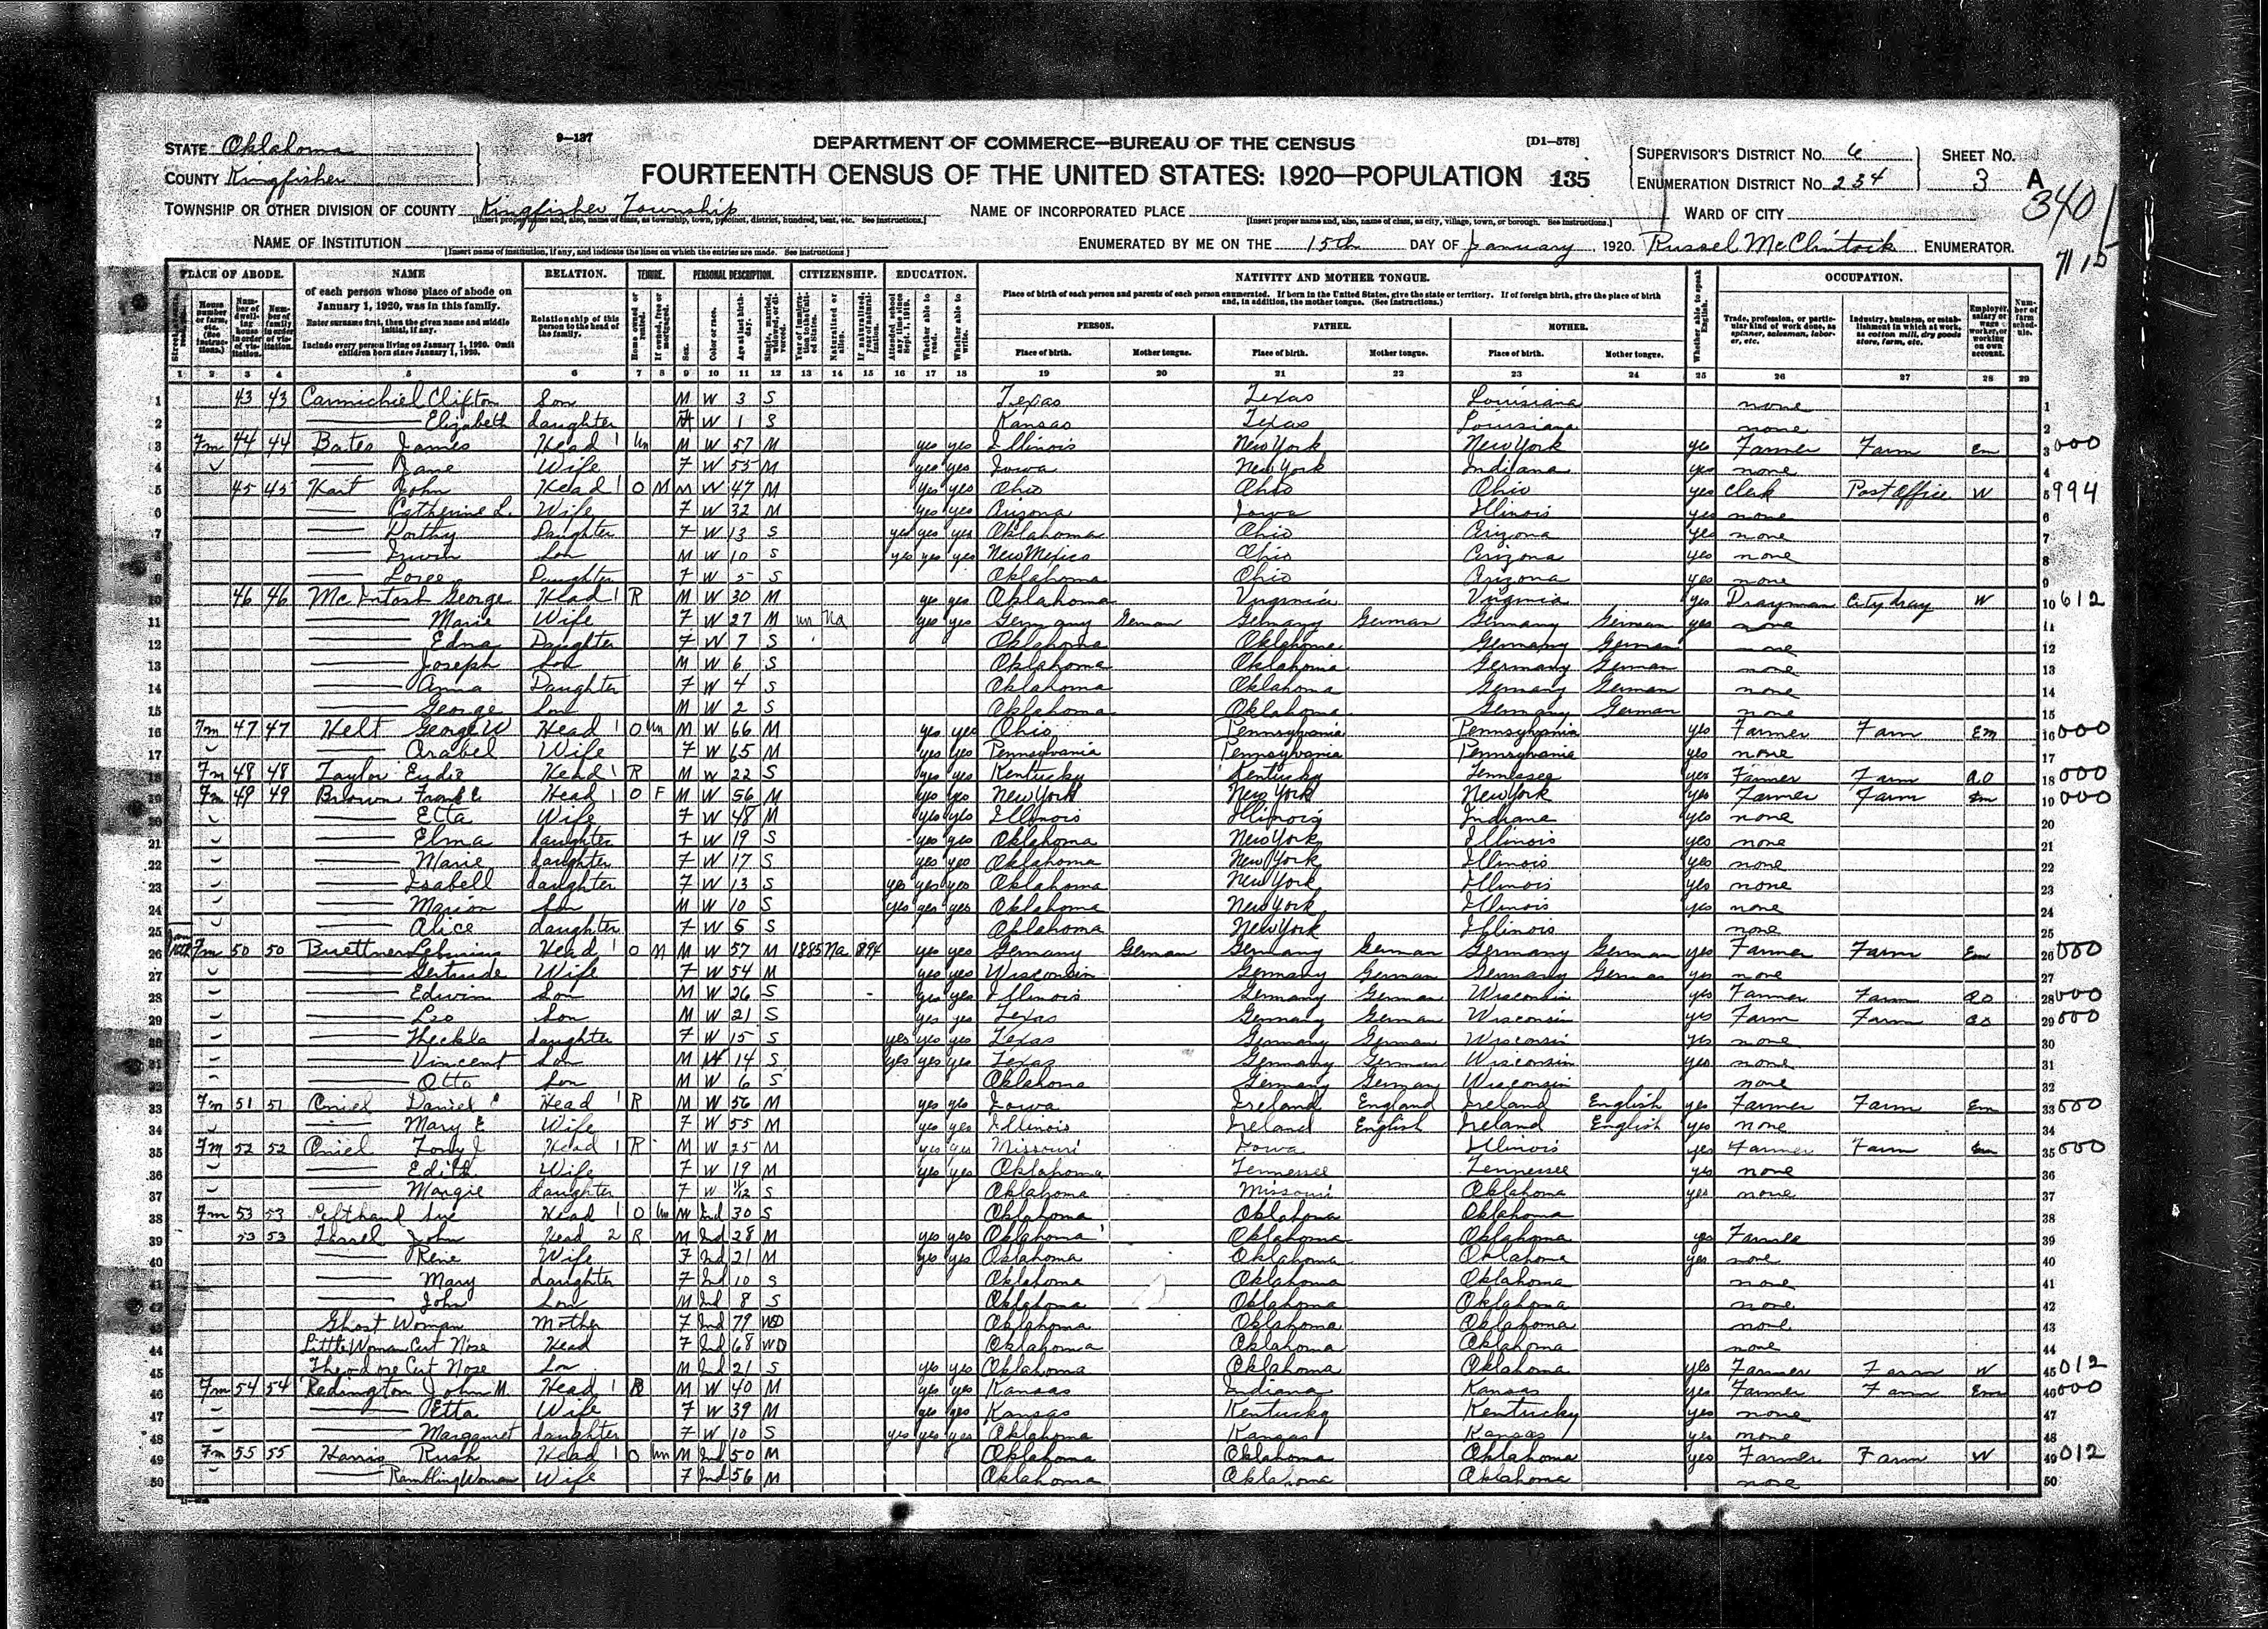 STATE Oklahoma
COUNTY Kingfisher
9—137
DEPARTMENT OF COMMERCE—BUREAU OF THE CENSUS
[D1—578]
FOURTEENTH CENSUS OF THE UNITED STATES: 1920—POPULATION 135
SUPERVISOR'S DISTRICT No. 6
ENUMERATION DISTRICT No. 234
SHEET No. 3 A
340
TOWNSHIP OR OTHER DIVISION OF COUNTY Kingfisher Township
NAME OF INCORPORATED PLACE
WARD OF CITY
NAME OF INSTITUTION
ENUMERATED BY ME ON THE 15th DAY OF January, 1920. Russel McClintock ENUMERATOR.
PLACE OF ABODE. NAME RELATION. TENURE. PERSONAL DESCRIPTION. CITIZENSHIP. EDUCATION. NATIVITY AND MOTHER TONGUE. OCCUPATION.
of each person whose place of abode on January 1, 1920, was in this family.
Enter surname first, then the given name and middle initial, if any.
Include every person living on January 1, 1920. Omit children born since January 1, 1920.
Relationship of this person to the head of the family.
Place of birth of each person and parents of each person enumerated. If born in the United States, give the state or territory. If of foreign birth, give the place of birth and, in addition, the mother tongue. (See instructions.)
PERSON. FATHER. MOTHER.
Place of birth. Mother tongue. Place of birth. Mother tongue. Place of birth. Mother tongue.
1 2 3 4 5 6 7 8 9 10 11 12 13 14 15 16 17 18 19 20 21 22 23 24 25 26 27 28 29
1 43 43 Carmichiel Clifton Son M W 3 S Texas Texas Louisiana none 1
2 Elizabeth daughter W 1 S Kansas Texas Louisiana none 2
3 Fm 44 44 Bates James Head 1 Un M W 57 M yes yes Illinois New York New York yes Farmer Farm Em 3 000
4 Jane Wife F W 55 M yes yes Iowa New York Indiana yes none 4
5 45 45 Hart John Head 1 O M M W 47 M yes yes Ohio Ohio Ohio yes Clerk Post Office W 5 994
6 Catherine L. Wife F W 32 M yes yes Arizona Iowa Illinois yes none 6
7 Dorthy Daughter F W 13 S yes yes yes Oklahoma Ohio Arizona yes none 7
8 Irwin Son M W 10 S yes yes yes New Mexico Ohio Arizona yes none 8
9 Loree Daughter F W 5 S Oklahoma Ohio Arizona yes none 9
10 46 46 McIntosh George Head 1 R M W 30 M yes yes Oklahoma Virginia Virginia yes Drayman City dray W 10 612
11 Marie Wife F W 27 M un Na yes yes Germany German Germany German Germany German yes none 11
12 Edna Daughter F W 7 S Oklahoma Oklahoma Germany German none 12
13 Joseph Son M W 6 S Oklahoma Oklahoma Germany German none 13
14 Anna Daughter F W 4 S Oklahoma Oklahoma Germany German none 14
15 George Son M W 2 S Oklahoma Oklahoma Germany German none 15
16 Fm 47 47 Helt George W Head 1 O Un M W 66 M yes yes Ohio Pennsylvania Pennsylvania yes Farmer Farm Em 16 000
17 Arabel Wife F W 65 M yes yes Pennsylvania Pennsylvania Pennsylvania yes none 17
18 Fm 48 48 Taylor Eudie Head 1 R M W 22 S yes yes Kentucky Kentucky Tennessee yes Farmer Farm OO 18 000
19 Fm 49 49 Brown Frank E Head 1 O F M W 56 M yes yes New York New York New York yes Farmer Farm Em 19 000
20 Etta Wife F W 48 M yes yes Illinois Illinois Indiana yes none 20
21 Elma daughter F W 19 S yes yes Oklahoma New York Illinois yes none 21
22 Marie daughter F W 17 S yes yes Oklahoma New York Illinois yes none 22
23 Isabell daughter F W 13 S yes yes yes Oklahoma New York Illinois yes none 23
24 Marion Son M W 10 S yes yes yes Oklahoma New York Illinois yes none 24
25 Alice daughter F W 5 S Oklahoma New York Illinois none 25
26 Fm 50 50 Buettner Head 1 O M M W 57 M 1885 Na 1894 yes yes Germany German Germany German Germany German yes Farmer Farm Em 26 000
27 Gertrude Wife F W 54 M yes yes Wisconsin Germany German Germany German yes none 27
28 Edwin Son M W 26 S yes yes Illinois Germany German Wisconsin yes Farmer Farm OO 28 000
29 Leo Son M W 21 S yes yes Texas Germany German Wisconsin yes Farm Farm OO 29 000
30 Theckla daughter F W 15 S yes yes yes Texas Germany German Wisconsin yes none 30
31 Vincent Son M W 14 S yes yes yes Texas Germany German Wisconsin yes none 31
32 Otto Son M W 6 S Oklahoma Germany Germany Wisconsin none 32
33 Fm 51 51 Oniel Daniel Head 1 R M W 56 M yes yes Iowa Ireland England Ireland English yes Farmer Farm Em 33 000
34 Mary E Wife F W 55 M yes yes Illinois Ireland English Ireland English yes none 34
35 Fm 52 52 Oniel Tony J Head 1 R M W 25 M yes yes Missouri Iowa Illinois yes Farmer Farm Em 35 000
36 Edith Wife F W 19 M yes yes Oklahoma Tennessee Tennessee yes none 36
37 Margie daughter F W 11/12 S Oklahoma Missouri Oklahoma yes none 37
38 Fm 53 53 Lefthand Head 1 O Un M Ind 30 S Oklahoma Oklahoma Oklahoma 38
39 53 53 John Head 2 R M Ind 28 M yes yes Oklahoma Oklahoma Oklahoma yes Farmer 39
40 Rene Wife F Ind 21 M yes yes Oklahoma Oklahoma Oklahoma yes none 40
41 Mary daughter F Ind 10 S Oklahoma Oklahoma Oklahoma none 41
42 John Son M Ind 8 S Oklahoma Oklahoma Oklahoma none 42
43 Ghost Woman Mother F Ind 79 WD Oklahoma Oklahoma Oklahoma none 43
44 Little Woman Cut Nose Head F Ind 68 WD Oklahoma Oklahoma Oklahoma none 44
45 Theodore Cut Nose Son M Ind 21 S yes yes Oklahoma Oklahoma Oklahoma yes Farmer Farm W 45 012
46 Fm 54 54 Redington John M. Head 1 R M W 40 M yes yes Kansas Indiana Kansas yes Farmer Farm Em 46 000
47 Etta Wife F W 39 M yes yes Kansas Kentucky Kentucky yes none 47
48 Margaret daughter F W 10 S yes yes yes Oklahoma Kansas Kansas yes none 48
49 Fm 55 55 Harris Rush Head 1 O Un M Ind 50 M Oklahoma Oklahoma Oklahoma yes Farmer Farm W 49 012
50 Rambling Woman Wife F Ind 56 M Oklahoma Oklahoma Oklahoma none 50